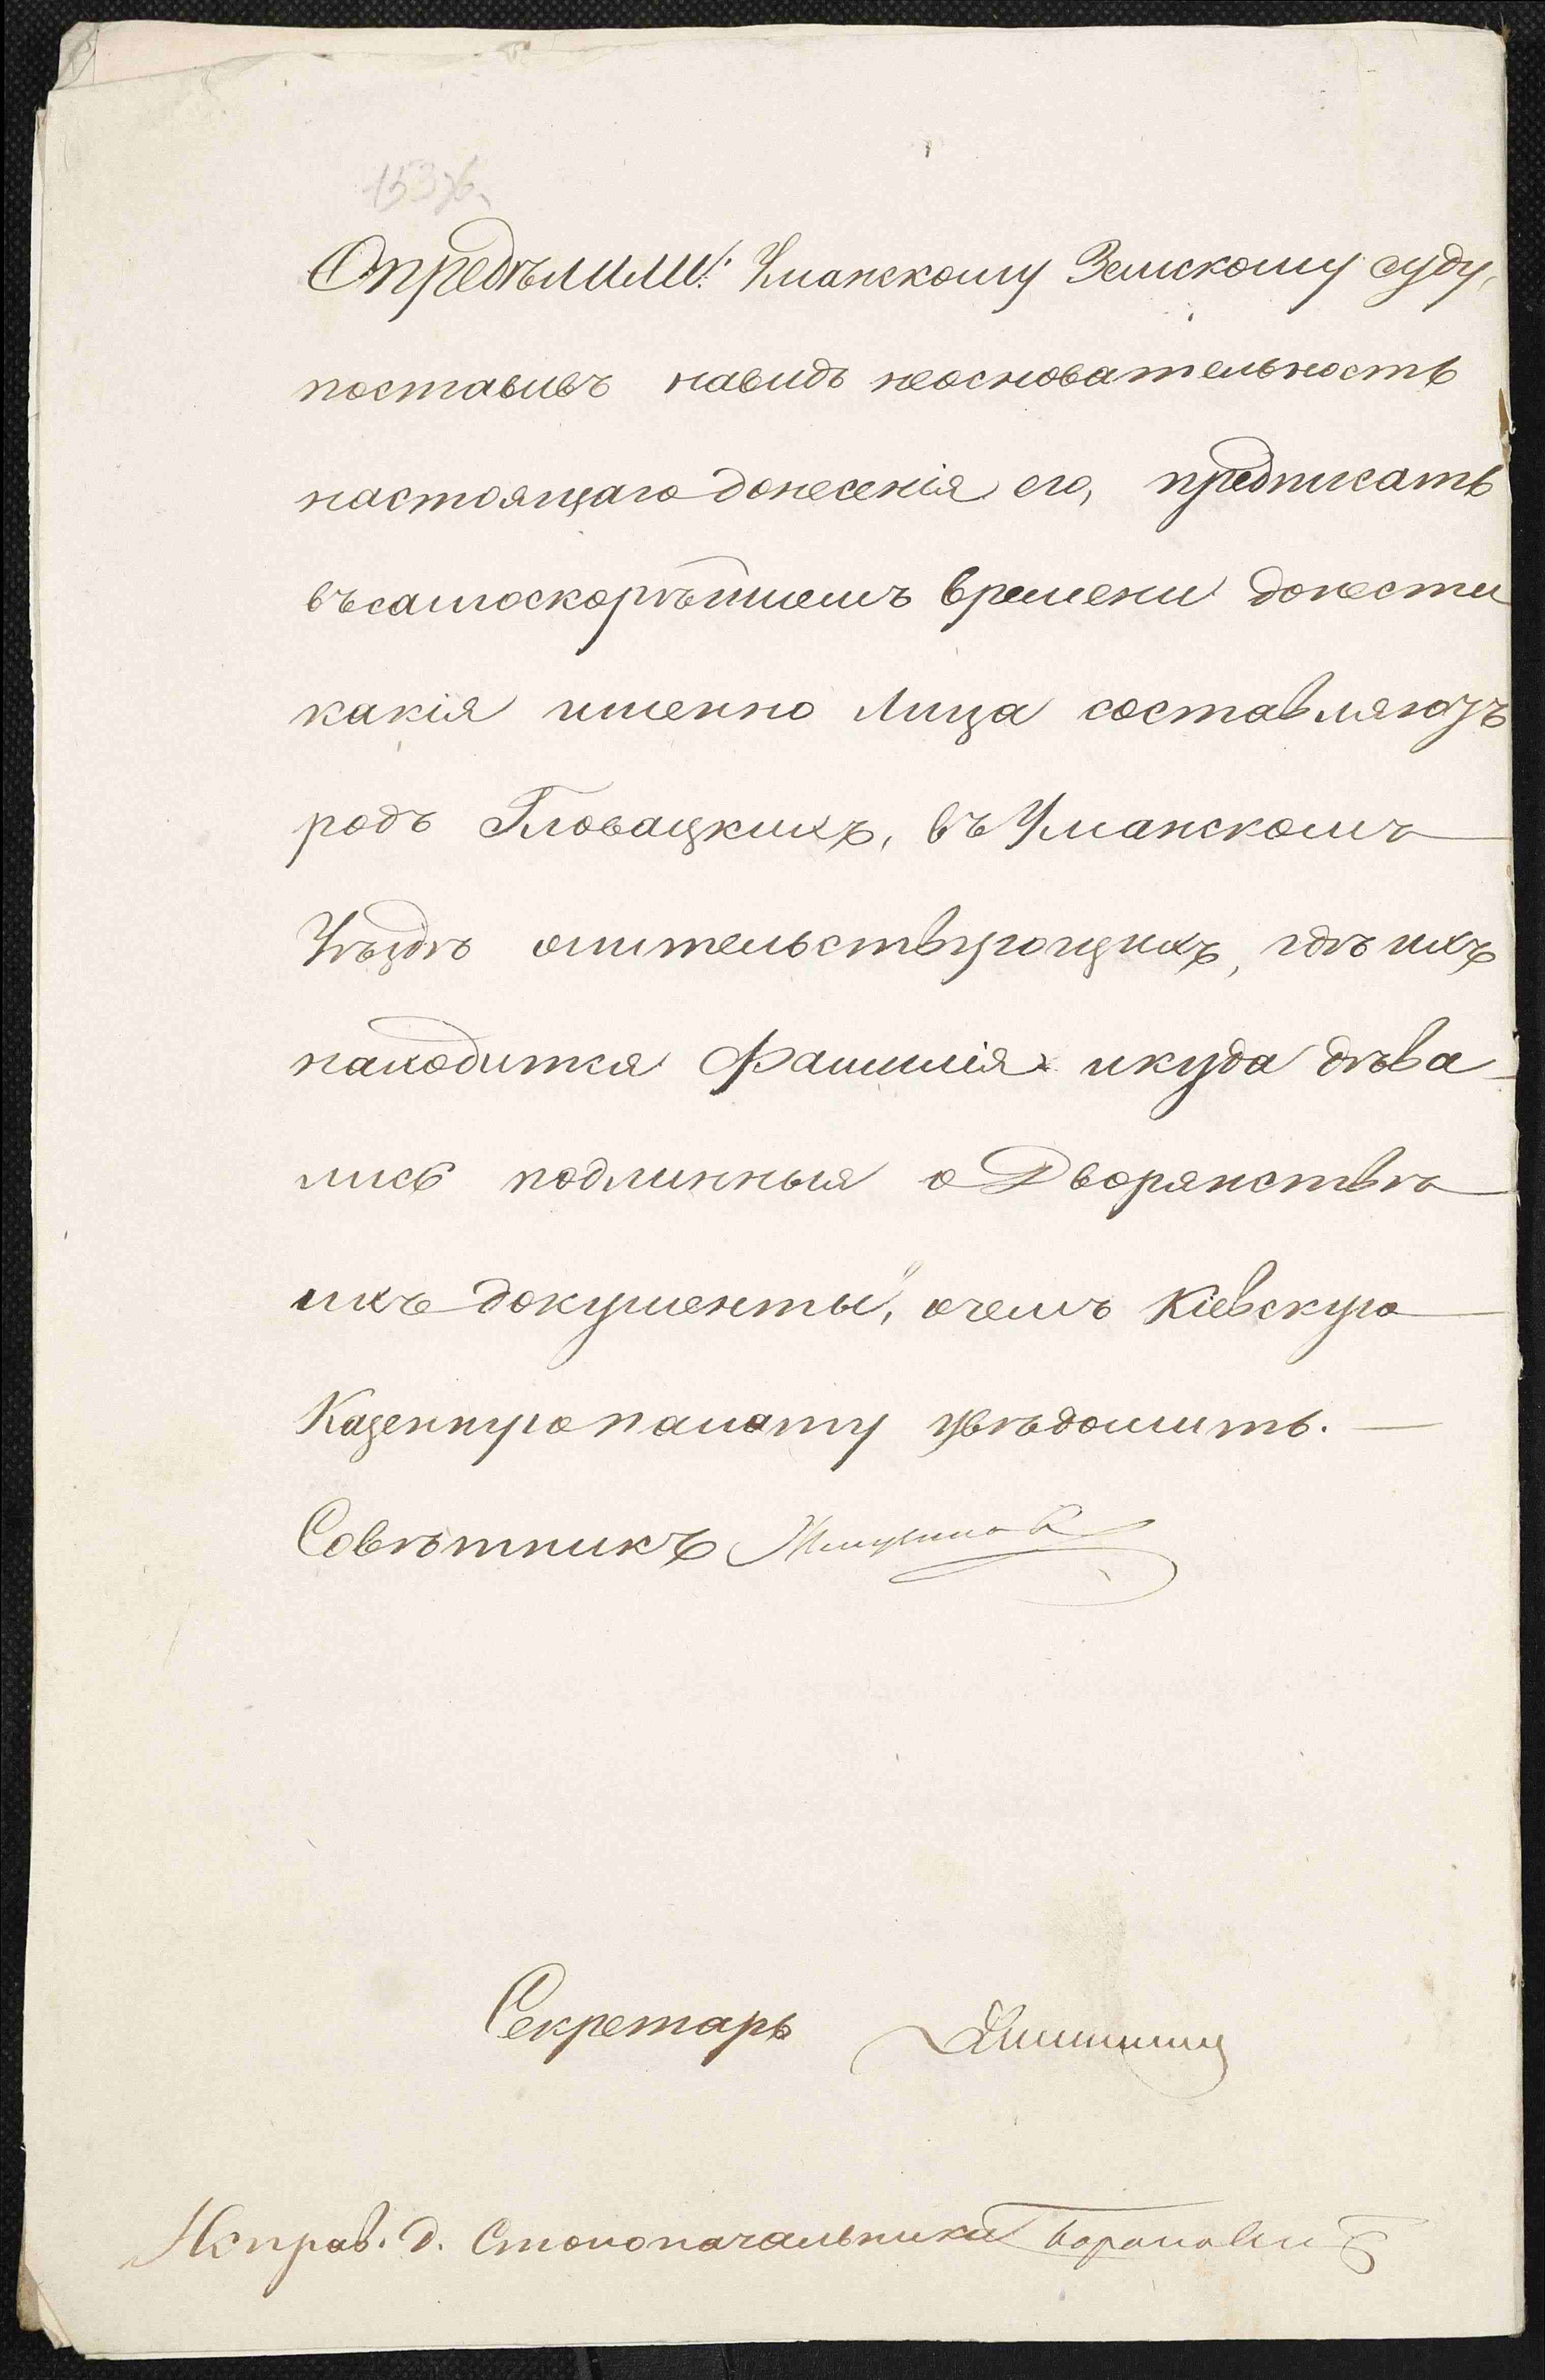 Опредѣлили: Уманскому Земскому суду,
поставивъ навидъ неосновательность
настоящаго донесенія его, предписать
въсамоскорѣйшемъ времени донести
какія именно Лица составляютъ
родъ Гловацкихъ, въ Уманскомъ
Уѣздѣ жительствующихъ, гдѣ ихъ
находится Фамилія икуда дѣва-
лись подлинныя о Дворянствѣ
ихъ документы, очемъ Кіевскую
Казенную палату увѣдомить. —
Совѣтникъ
Секретарь
Исправ. д. Столоначальника